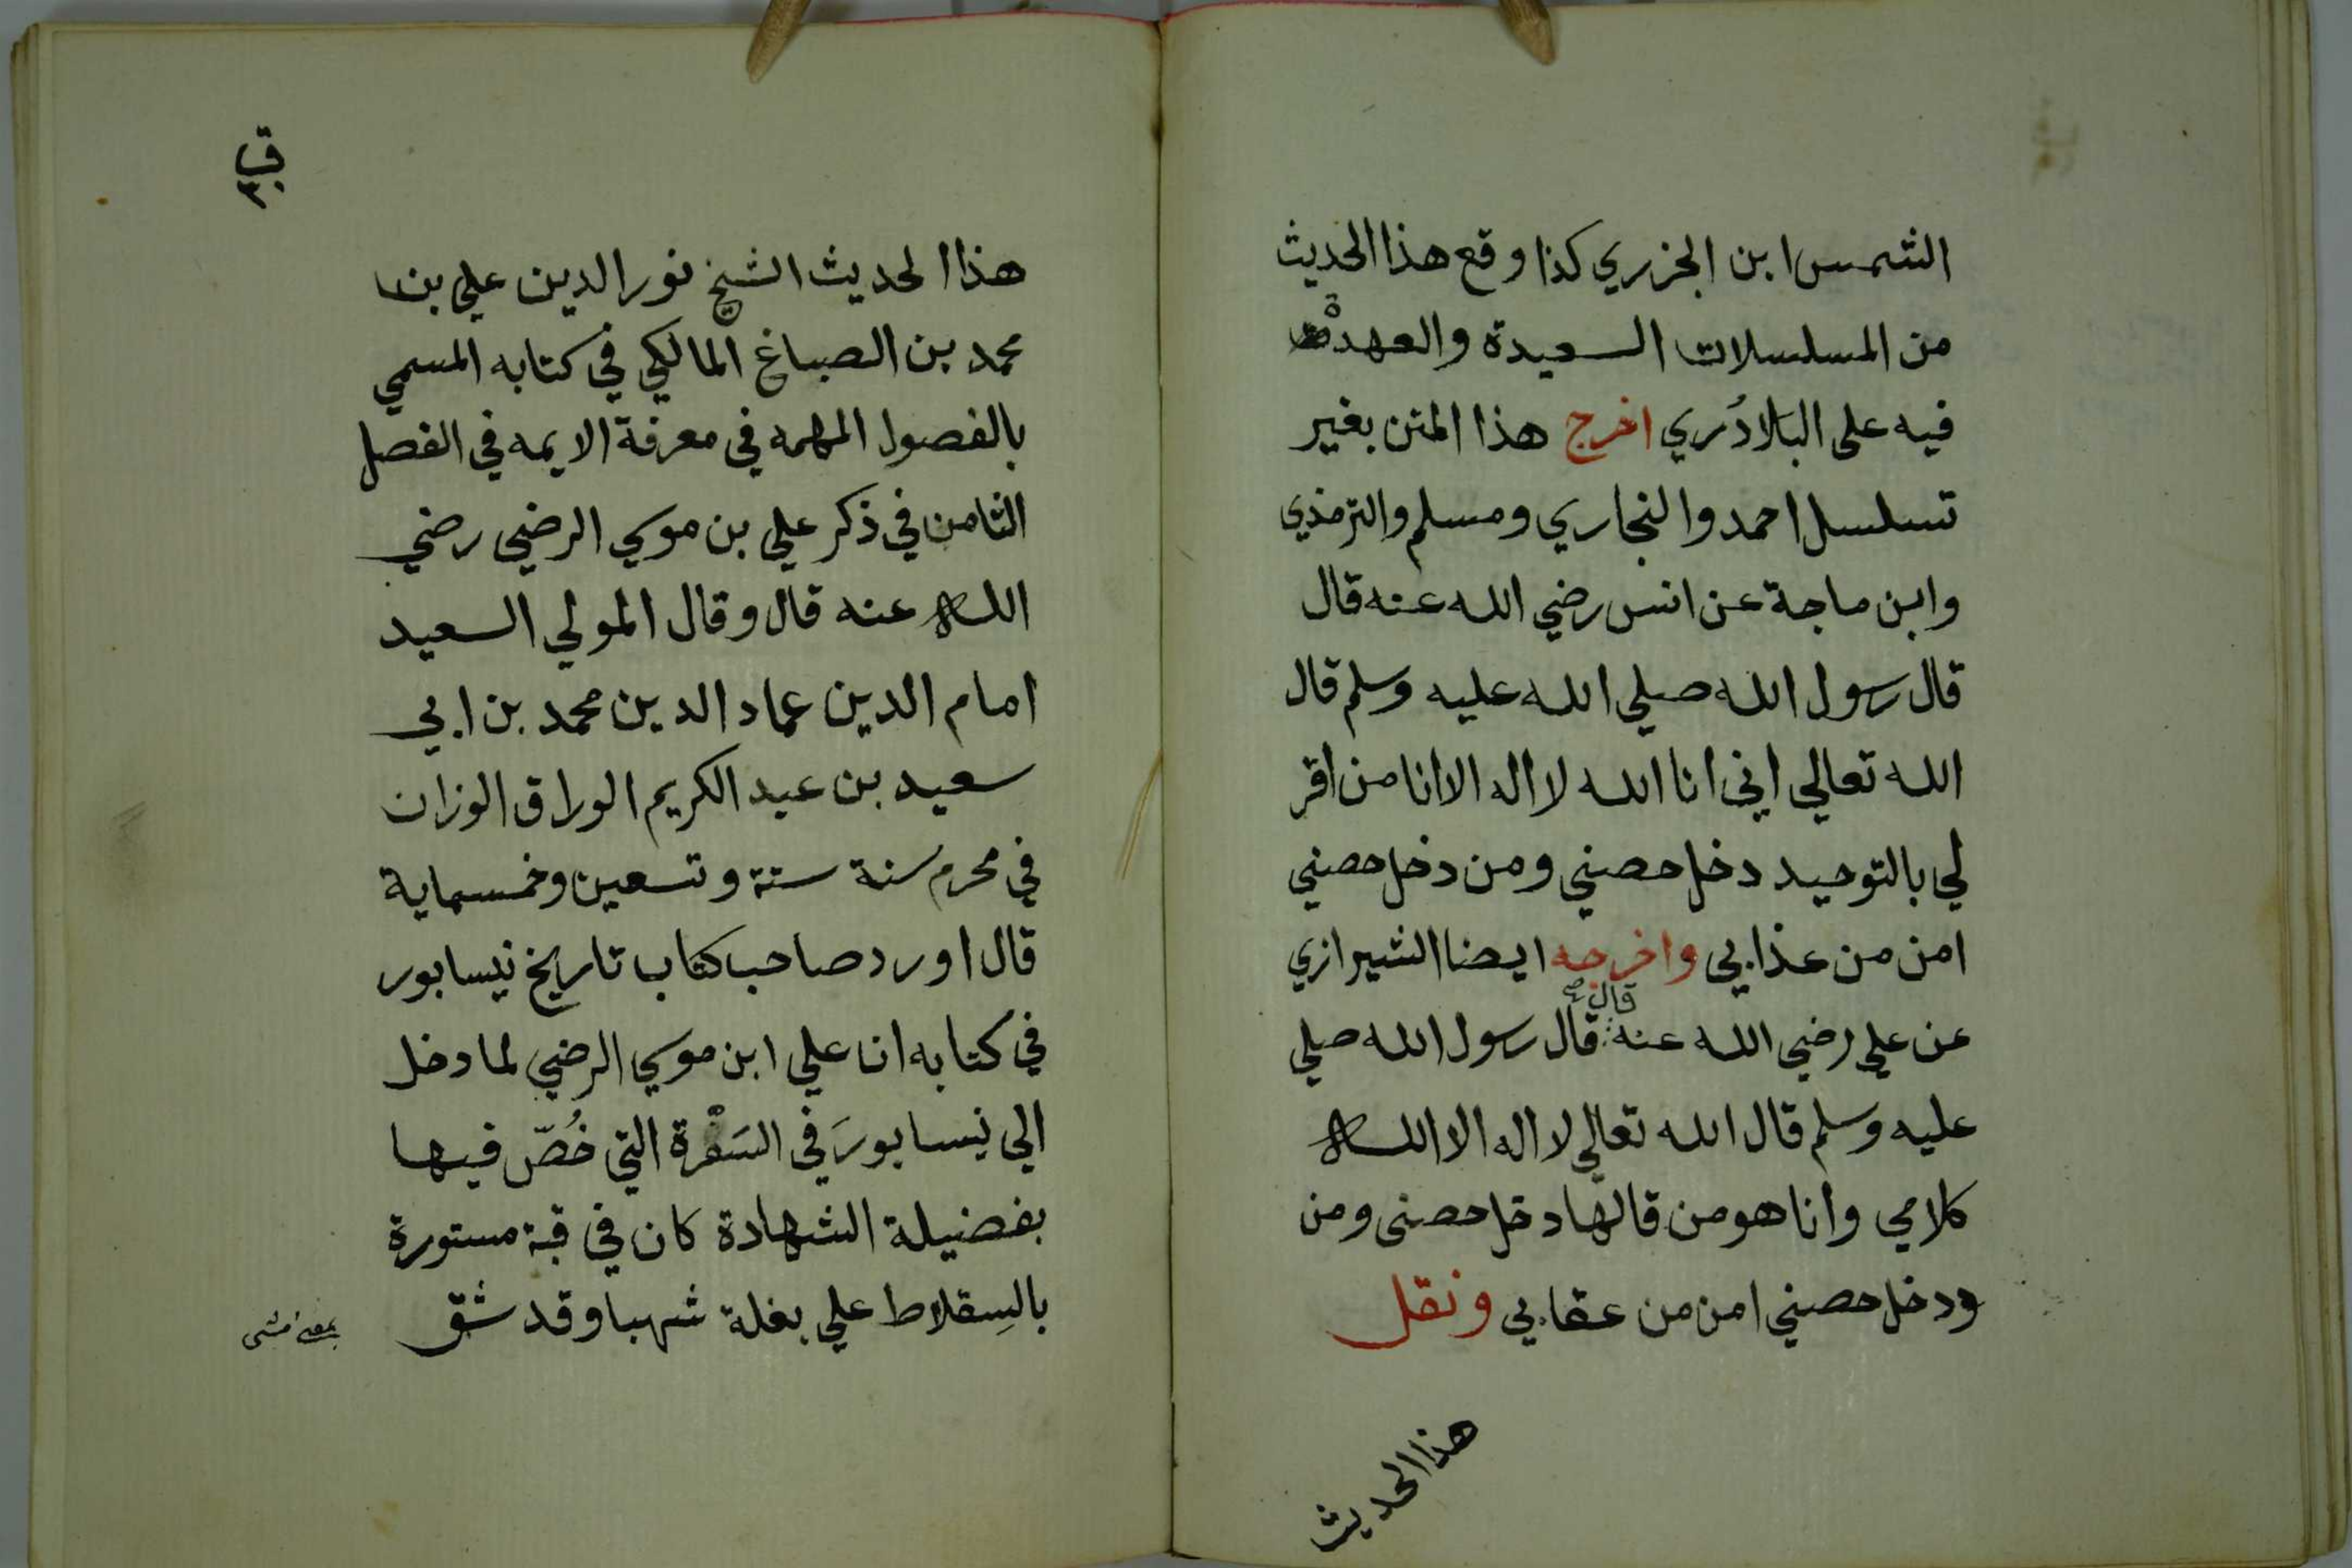 الشمس ابن الجزري كذا وقع هذا الحديث
من المسلسلات السعيدة والعهدة
فيه على البلادُري اخرج هذا المتن بغير
تسلسل احمد والبخاري ومسلم والترمذي
وابن ماجة عن انس رضي الله عنه قال
قال رسول الله صلي الله عليه وسلم قال
الله تعالي اني انا الله لا اله الا انا من اقر
لي بالتوحيد دخل حصني ومن دخل حصني
امن من عذابي واخرجه ايضا الشيرازي
قال صح
عن علي رضي الله عنه قال رسول الله صلي
عليه وسلم قال الله تعالي لا اله الا الله
كلامي وانا هو من قالها دخل حصني ومن
ودخل حصني امن من عقابي ونقل
هذا الحديث
هذا الحديث الشيخ نور الدين علي بن
محمد بن الصباغ المالكي في كتابه المسمي
بالفصول المهمه في معرفة الايمه في الفصل
الثامن في ذكر علي بن موسي الرضي رضي
الله عنه قال وقال المولي السعيد
امام الدين عماد الدين محمد بن ابي
سعيد بن عبد الكريم الوراق الوزان
في محرم سنة ستة وتسعين وخمسماية
قال اورد صاحب كتاب تاريخ نيسابور
في كتابه ان علي ابن موسي الرضي لما دخل
الي نيسابورَ في السَفْرة التي خُصّ فيها
بفضيلة الشهادة كان في قبة مستورة
بالسِقلاط علي بغلة شهبا وقد شق